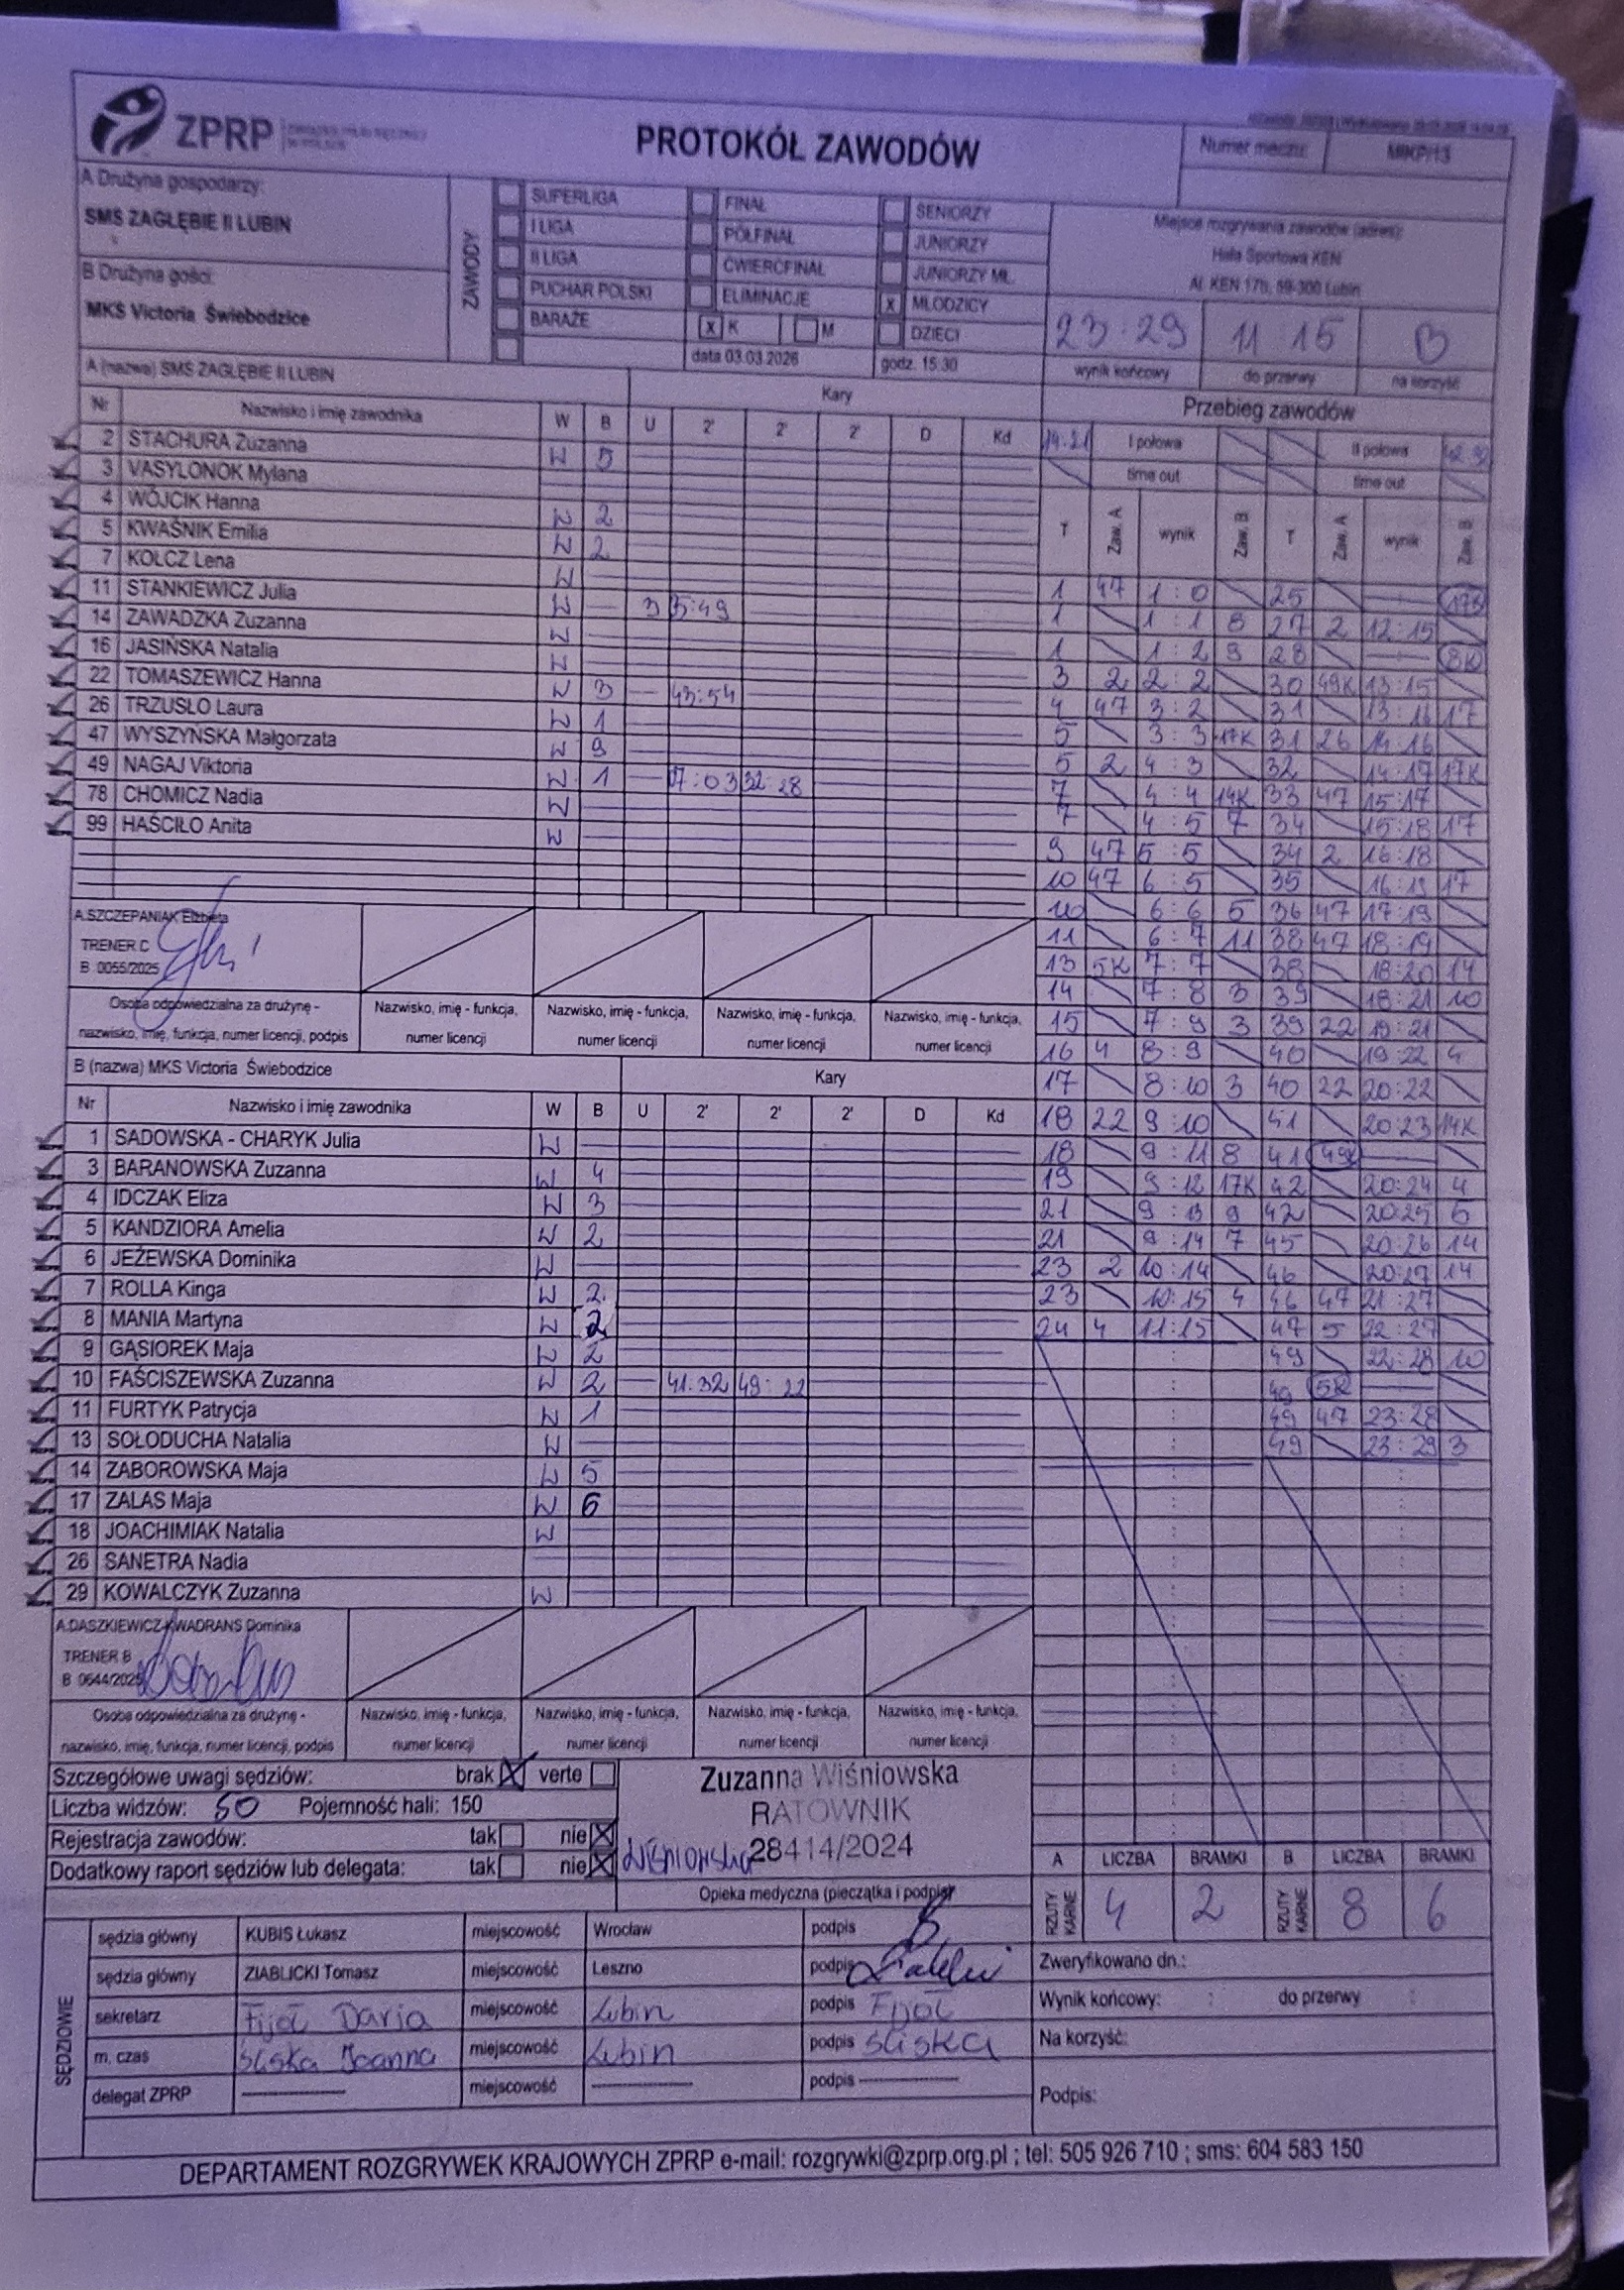 ZPRP
PROTOKÓŁ ZAWODÓW
Numer meczu: MłKP/13
A Drużyna gospodarzy:
SMS ZAGŁĘBIE II LUBIN
B Drużyna gości:
MKS Victoria Świebodzice
ZAWODY
SUPERLIGA FINAŁ SENIORZY
I LIGA PÓŁFINAŁ JUNIORZY
II LIGA ĆWIERĆFINAŁ JUNIORZY MŁ.
PUCHAR POLSKI ELIMINACJE x MŁODZICY
BARAŻE x K M DZIECI
data 03.03.2026 godz. 15:30
Miejsce rozgrywania zawodów (adres):
Hala Sportowa KEN
Al. KEN 17b, 59-300 Lubin
23:29 11 15 B
wynik końcowy do przerwy na korzyść
A (nazwa) SMS ZAGŁĘBIE II LUBIN Kary
Nr Nazwisko i imię zawodnika W B U 2' 2' 2' D Kd
2 STACHURA Zuzanna W 5
3 VASYLONOK Mylana
4 WÓJCIK Hanna W 2
5 KWAŚNIK Emilia W 2
7 KOLCZ Lena W
11 STANKIEWICZ Julia W
14 ZAWADZKA Zuzanna W
16 JASIŃSKA Natalia W
22 TOMASZEWICZ Hanna W 3 43:54
26 TRZUSŁO Laura W 1
47 WYSZYŃSKA Małgorzata W 9
49 NAGAJ Viktoria W 1 17:03 32:28
78 CHOMICZ Nadia W
99 HAŚCIŁO Anita W
A.SZCZEPANIAK Elżbieta
TRENER C
B 0055/2025
Osoba odpowiedzialna za drużynę - nazwisko, imię, funkcja, numer licencji, podpis
Nazwisko, imię - funkcja, numer licencji
Nazwisko, imię - funkcja, numer licencji
Nazwisko, imię - funkcja, numer licencji
Nazwisko, imię - funkcja, numer licencji
B (nazwa) MKS Victoria Świebodzice Kary
Nr Nazwisko i imię zawodnika W B U 2' 2' 2' D Kd
1 SADOWSKA - CHARYK Julia W
3 BARANOWSKA Zuzanna W 4
4 IDCZAK Eliza W 3
5 KANDZIORA Amelia W 2
6 JEŻEWSKA Dominika W
7 ROLLA Kinga W 2
8 MANIA Martyna W 2
9 GĄSIOREK Maja W 2
10 FAŚCISZEWSKA Zuzanna W 2 41:32 49:22
11 FURTYK Patrycja W 1
13 SOŁODUCHA Natalia W
14 ZABOROWSKA Maja W 5
17 ZALAS Maja W 6
18 JOACHIMIAK Natalia W
26 SANETRA Nadia
29 KOWALCZYK Zuzanna W
A.DASZKIEWICZ-KWADRANS Dominika
TRENER B
B 0644/2025
Osoba odpowiedzialna za drużynę - nazwisko, imię, funkcja, numer licencji, podpis
Nazwisko, imię - funkcja, numer licencji
Nazwisko, imię - funkcja, numer licencji
Nazwisko, imię - funkcja, numer licencji
Nazwisko, imię - funkcja, numer licencji
Przebieg zawodów
I połowa II połowa
time out time out
T Zaw. A wynik Zaw. B T Zaw. A wynik Zaw. B
1 47 1:0 25 17K
1 1:1 8 27 2 12:15
1 1:2 9 28 8K
3 2 2:2 30 49K 13:15
4 47 3:2 31 13:16 17
5 3:3 17K 31 26 14:16
5 2 4:3 32 14:17 17K
7 4:4 14K 33 47 15:17
7 4:5 7 34 15:18 17
9 47 5:5 34 2 16:18
10 47 6:5 35 16:19 17
10 6:6 5 36 47 17:19
11 6:7 11 38 47 18:19
13 5K 7:7 38 18:20 14
14 7:8 3 39 18:21 10
15 7:9 3 39 22 19:21
16 4 8:9 40 19:22 4
17 8:10 3 40 22 20:22
18 22 9:10 41 20:23 14K
18 9:11 8 41 49K
19 9:12 17K 42 20:24 4
21 9:13 9 42 20:25 5
21 9:14 7 45 20:26 14
23 2 10:14 46 20:27 14
23 10:15 4 46 47 21:27
24 4 11:15 47 5 22:27
49 22:28 10
49 5K
49 47 23:28
49 23:29 3
Szczegółowe uwagi sędziów: brak X verte
Liczba widzów: 50 Pojemność hali: 150
Rejestracja zawodów: tak nie X
Dodatkowy raport sędziów lub delegata: tak nie X
Zuzanna Wiśniowska
RATOWNIK
28414/2024
Wiśniowska
Opieka medyczna (pieczątka i podpis)
A LICZBA BRAMKI B LICZBA BRAMKI
RZUTY KARNE 4 2 RZUTY KARNE 8 6
SĘDZIOWIE
sędzia główny KUBIS Łukasz miejscowość Wrocław podpis
sędzia główny ZIABLICKI Tomasz miejscowość Leszno podpis
sekretarz Fijoł Daria miejscowość Lubin podpis Fijoł
m. czas Śliska Joanna miejscowość Lubin podpis Śliska
delegat ZPRP miejscowość podpis
Zweryfikowano dn.:
Wynik końcowy: : do przerwy :
Na korzyść:
Podpis:
DEPARTAMENT ROZGRYWEK KRAJOWYCH ZPRP e-mail: rozgrywki@zprp.org.pl ; tel: 505 926 710 ; sms: 604 583 150